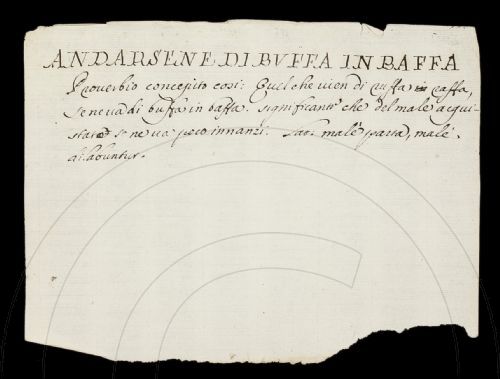 ANDARSENE DI BVFFA IN BAFFA
Proverbio concepito cosi: Quel che vien di ruffa in raffa,
se ne va di buffa in baffa. significante che del male acqui-
stato se ne va poco innanzi. Lat. malè parta, malè
dilabuntur.